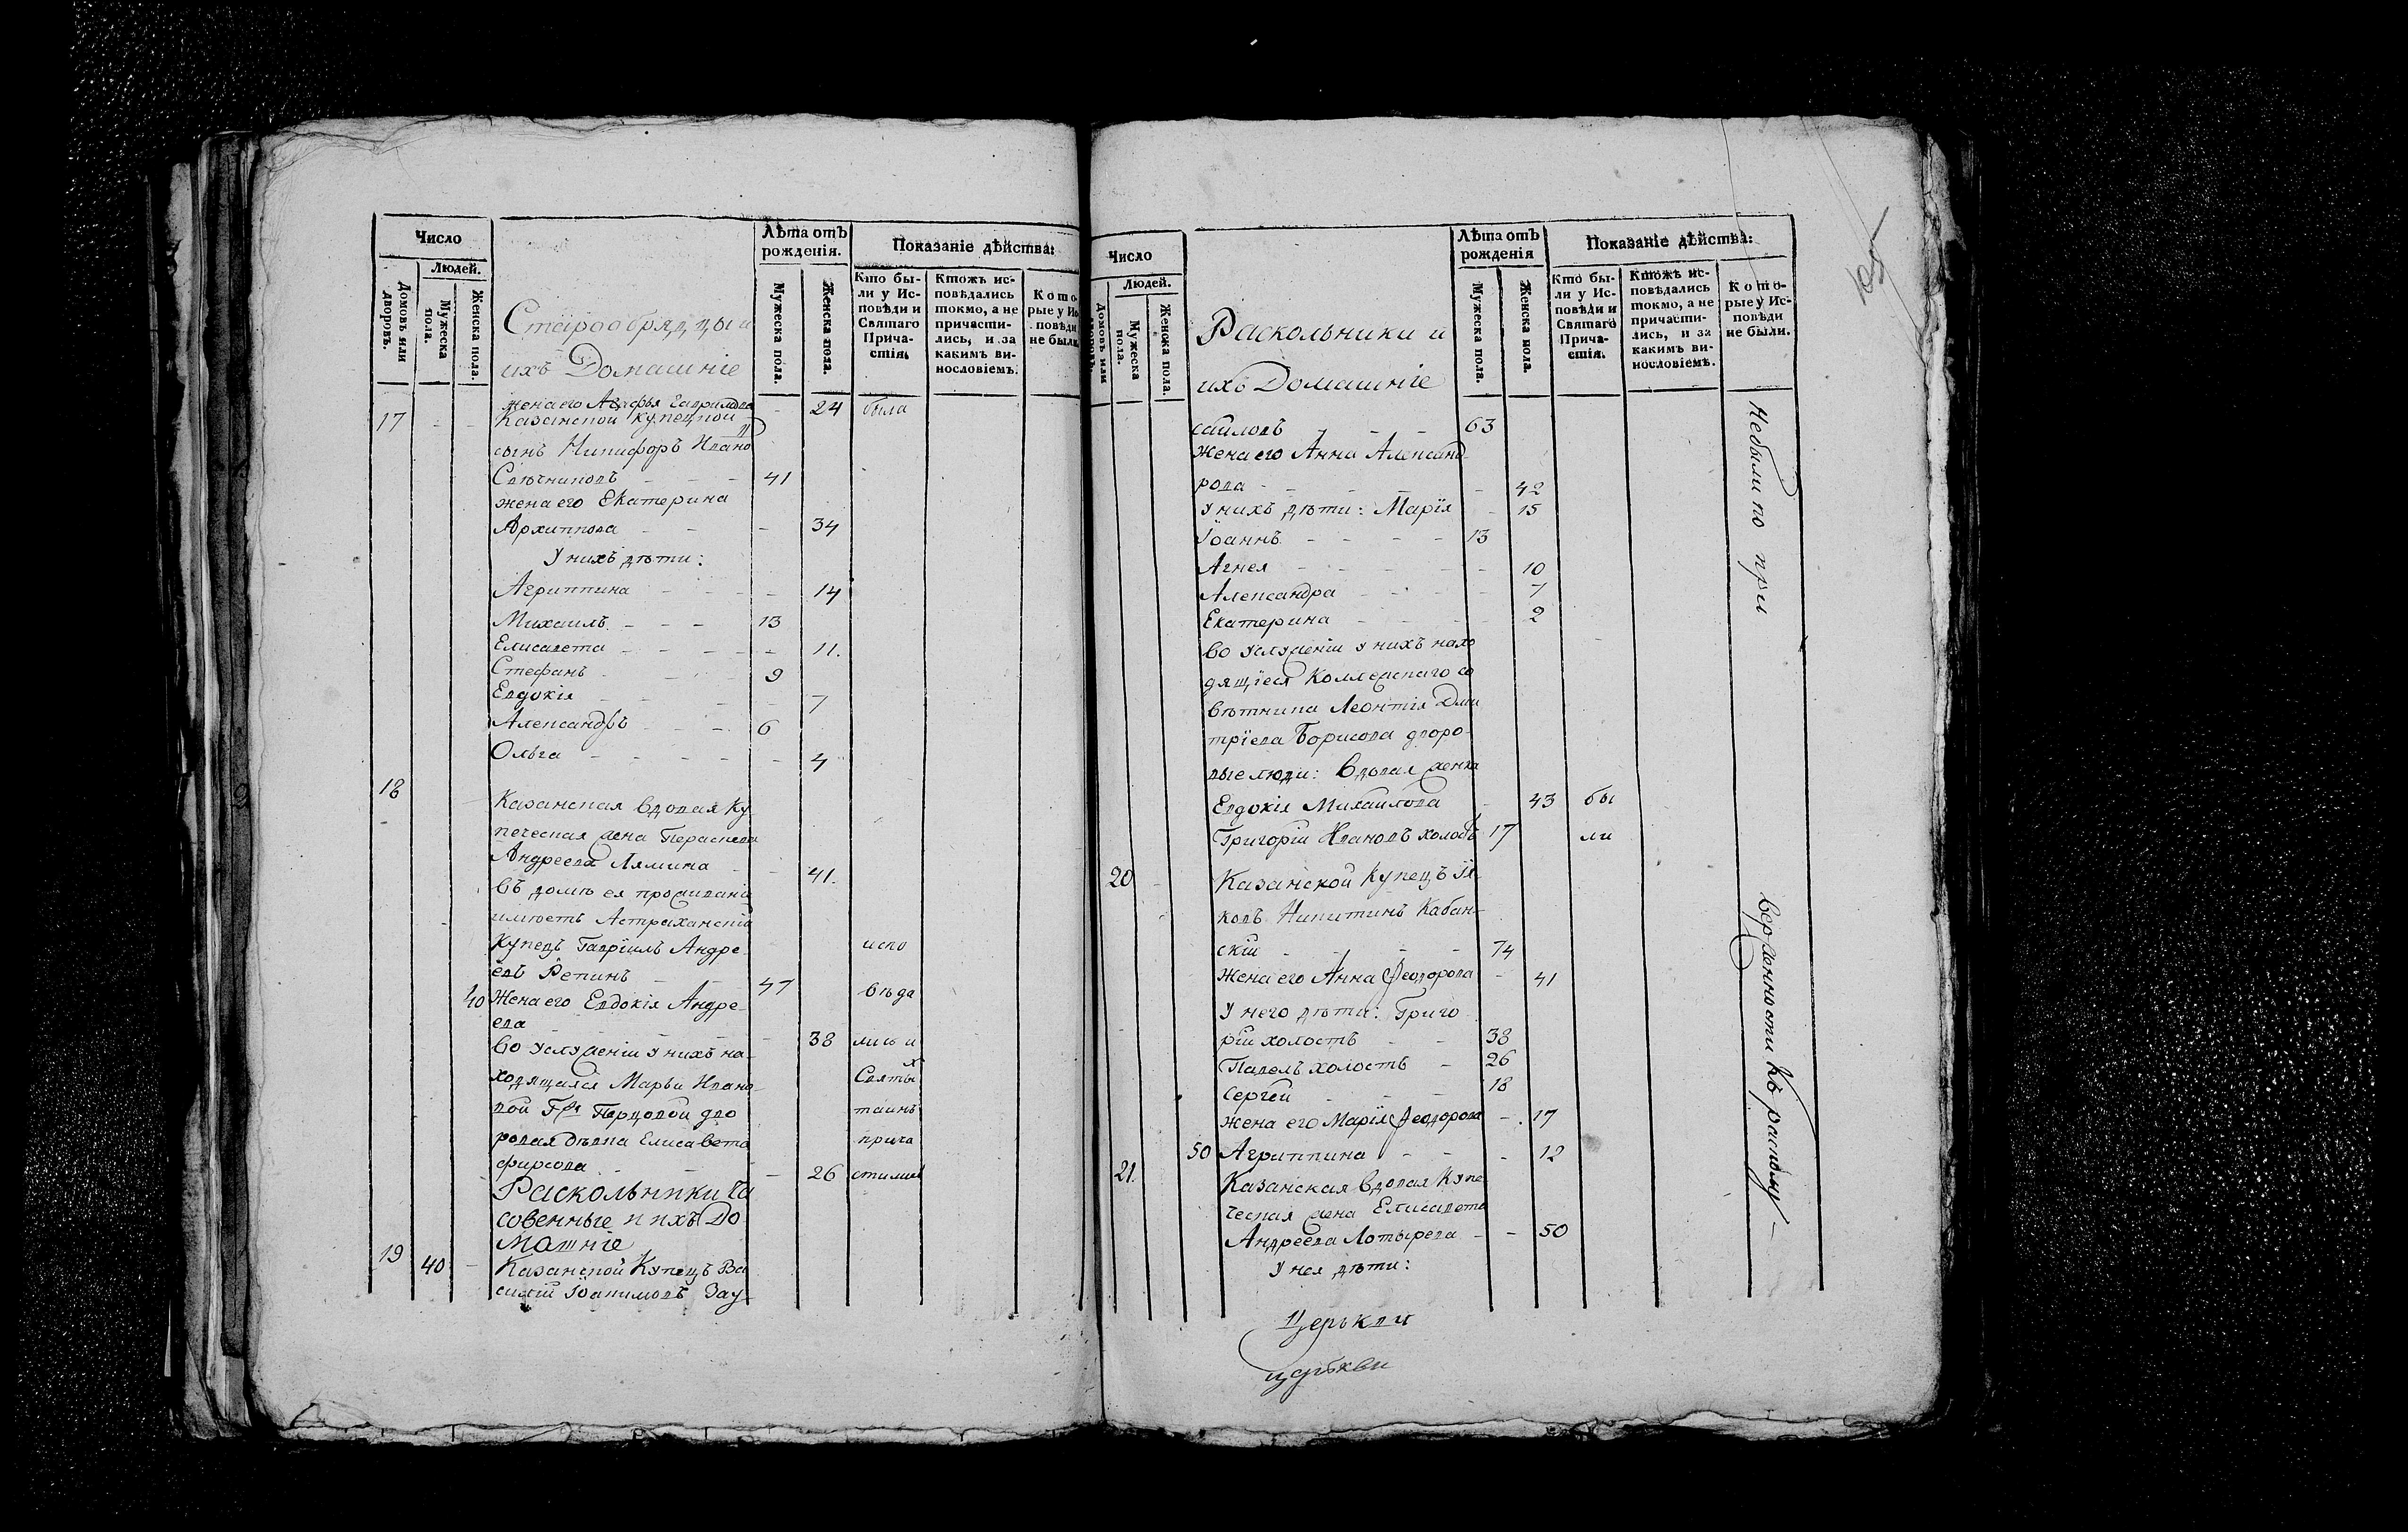 Число
Людей.
Домовъ или дворовъ.
Мужеска пола.
Женска пола.
Старообрядцы и
ихъ Домашніе
Лѣта отъ рожденія.
Мужеска пола.
Женска пола.
Показаніе дѣйства:
Кто бы-
ли у Ис-
повѣди и
Святаго
Прича-
стія.
Ктожъ ис-
повѣдались
токмо, а не
причасти-
лись, и за
какимъ ви-
нословіемъ.
Кото-
рые у Ис-
повѣди
не были.
жена его Агафья Гаврилова - 24 была
17 - - Казанской купецкой
сынъ Никифоръ Ивано
Свѣчниковъ - - - 41
жена его Екатерина
Архиппова - - - 34
У нихъ дѣти:
Агриппина - - - - 14
Михаилъ - - - 13
Елисавета - - - - - 11.
Стефанъ - - - 9
Евдокія - - 7
Александръ - - - 6
Ольга - - - - - - 4
18 - Казанская вдовая ку
печеская жена Параскева
Андреева Лямина - - 41.
въ домѣ ея проживаніе
имѣетъ Астраханскій
Купецъ Гавріилъ Андре- испо
евъ Репинъ - - - 47
40 Жена его Евдокія Андре- вѣда
ева - - - - - 38 лись и
во услуженіи у нихъ на-
ходящаяся Марьи Ивано- Святых
вой Гжи Перцовой дво таинъ
ровая дѣвка Елисавета прича
фирсова - - - - 26 стились
Раскольники Ча
совенные и ихъ До
машніе
19 40 - Казанской Купецъ Ва
силій Іоакимовъ Зау-
Число
Людей.
Домовъ или дворовъ.
Мужеска пола.
Женска пола.
Раскольники и
ихъ Домашніе
Лѣта отъ рожденія
Мужеска пола.
Женска пола.
Показаніе дѣйства:
Кто бы-
ли у Ис-
повѣди и
Святаго
Прича-
стія.
Ктожъ ис-
повѣдались
токмо, а не
причасти-
лись, и за
какимъ ви-
нословіемъ.
Кото-
рые у Ис-
повѣди
не были.
саиловъ - - - 63
жена его Анна Александ-
рова - - - - - 42
У нихъ дѣти: Марія - 15
Іоаннъ - - - - 13
Агнея - - - - - 10
Александра - - - - 7
Екатерина - - - - 2
Во услуженіи у нихъ нахо
дящіеся Коллежскаго со
вѣтника Леонтія Дми
тріева Борисова дворо-
вые люди: вдовая женка
Евдокія Михайлова - 43 бы
Григорій Ивановъ холостъ 17 ли
20 - Казанской Купецъ Іа-
ковъ Никитинъ Кабан-
скій - - - - 74
Жена его Анна Феодорова - 41
У него дѣти: Григо
рій холостъ - - 38
Павелъ холостъ - 26
Сергей - - - 18
жена его Марія Феодорова - 17
50 Агриппина - - - 12
21. Казанская вдовая Купе
ческая жена Елисавета
Андреева Лотырева - - 50
У нея дѣти:
Небыли по при
верженности къ расколу -
Церькви
церькви